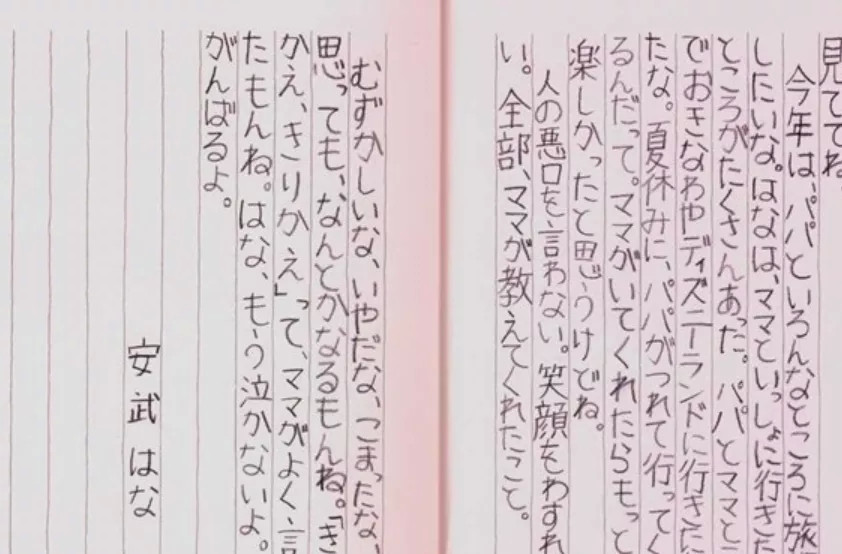 見ててね
今年は、パパといろんなところに旅
したいな。はなは、ママといっしょに行きた
ところがたくさんあった。パパとママと
でおきなわやディズニーランドに行きた
たな。夏休みに、パパがつれて行ってく
るんだって。ママがいてくれたらもっと
楽しかったと思うけどね。
人の悪口を言わない。笑顔をわすれ
い。全部、ママが教えてくれたこと。
むずかしいな、いやだな、こまったな、
思っても、なんとかなるもんね。「き
かえ、きりかえ」って、ママがよく言
たもんね。はな、もう泣かないよ。
がんばるよ。
安武はな